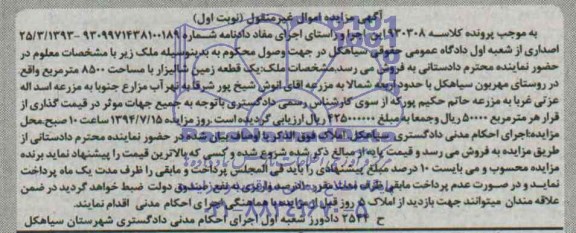 آگهی مزایده اموال غیرمنقول (نوبت اول)
به موجب پرونده کلاسه ۹۳۰۳۰۸ این اجرا و راستای اجرای مفاد دادنامه شماره ۹۳۰۹۹۷۱۴۳۸۱۰۰۱۸۹ -۲۵/۳/۱۳۹۳
اصداری از شعبه اول دادگاه عمومی حقوقی سیاهکل در جهت وصول محکوم به بدینوسیله ملک زیر با مشخصات معلوم در
حضور نماینده محترم دادستانی به فروش می رسد.مشخصات ملک:یک قطعه زمین شالیزار با مساحت ۸۵۰۰ مترمربع واقع
در روستای مهربون سیاهکل با حدود اربعه شمالا به مزرعه اقای انوش شیخ پور شرقا به نهر آب مزارع جنوبا به مزرعه اسد اله
عزتی غربا به مزرعه حاتم حکیم پور که از سوی کارشناس رسمی دادگستری باتوجه به جمیع جهات موثر در قیمت گذاری از
قرار هر مترمربع ۵۰۰۰۰ ریال وجمعا به مبلغ ۴۲۵۰۰۰۰۰۰ ریال ارزیابی گردیده است روز مزایده ۱۳۹۴/۷/۱۵ ساعت ۱۰ صبح محل
مزایده:اجرای احکام مدنی دادگستری سیاهکل. املاک فوق الذکر با اوصاف بیان شده در حضور نماینده محترم دادستانی از
طریق مزایده به فروش می رسد و قیمت پایه از مبالغ ذکر شده شروع شده و کسی که بالاترین قیمت را پیشنهاد نماید برنده
مزایده محسوب و می بایست ۱۰ درصد مبلغ پیشنهادی را باید فی المجلس پرداخت و مابقی را ظرف مدت یک ماه پرداخت
نماید و در صورت عدم پرداخت مابقی ظرف مدت مقرر ۱۰ درصد واریزی به نفع صندوق دولت ضبط خواهد گردید در ضمن
علاقه مندان میتوانند جهت بازدید از املاک ۵ روز قبل از مزایده با هماهنگی اجرای احکام مدنی اقدام نمایند.
ح ۲۵۴۴ دادورز شعبه اول اجرای احکام مدنی دادگستری شهرستان سیاهکل